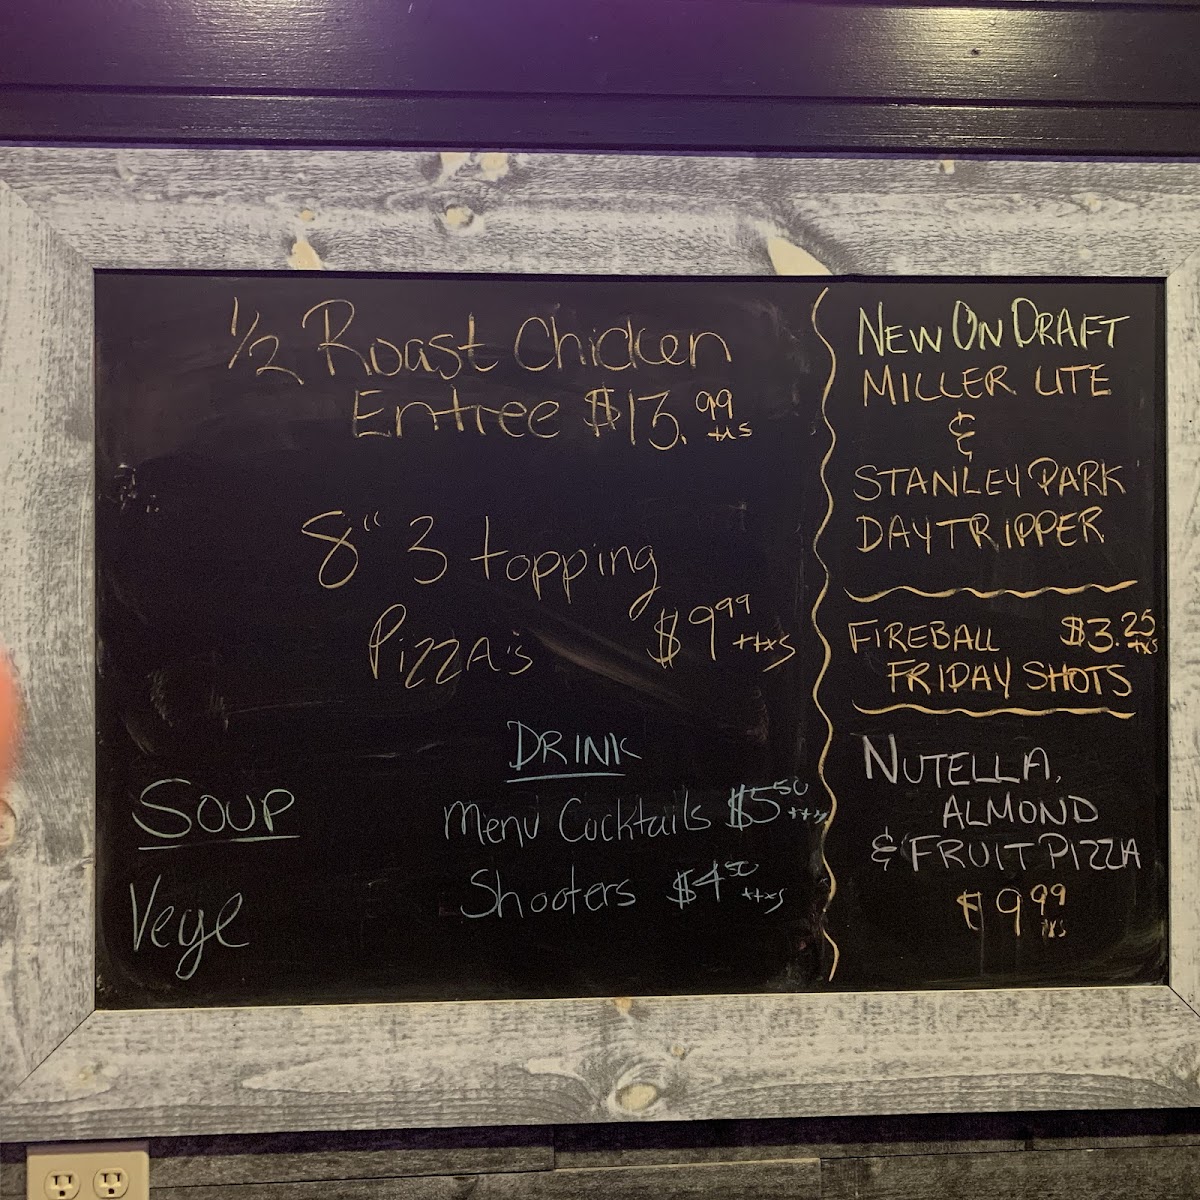 1/2 Roast Chicken
Entree $13.99 +txs
8" 3 topping
Pizza's $9.99 +txs
Soup
Vege
Drink
Menu Cocktails $5.50 +txs
Shooters $4.50 +txs
NEW ON DRAFT
MILLER LITE
&
STANLEY PARK
DAYTRIPPER
FIREBALL $3.25 +txs
FRIDAY SHOTS
NUTELLA,
ALMOND
& FRUIT PIZZA
$9.99
txs